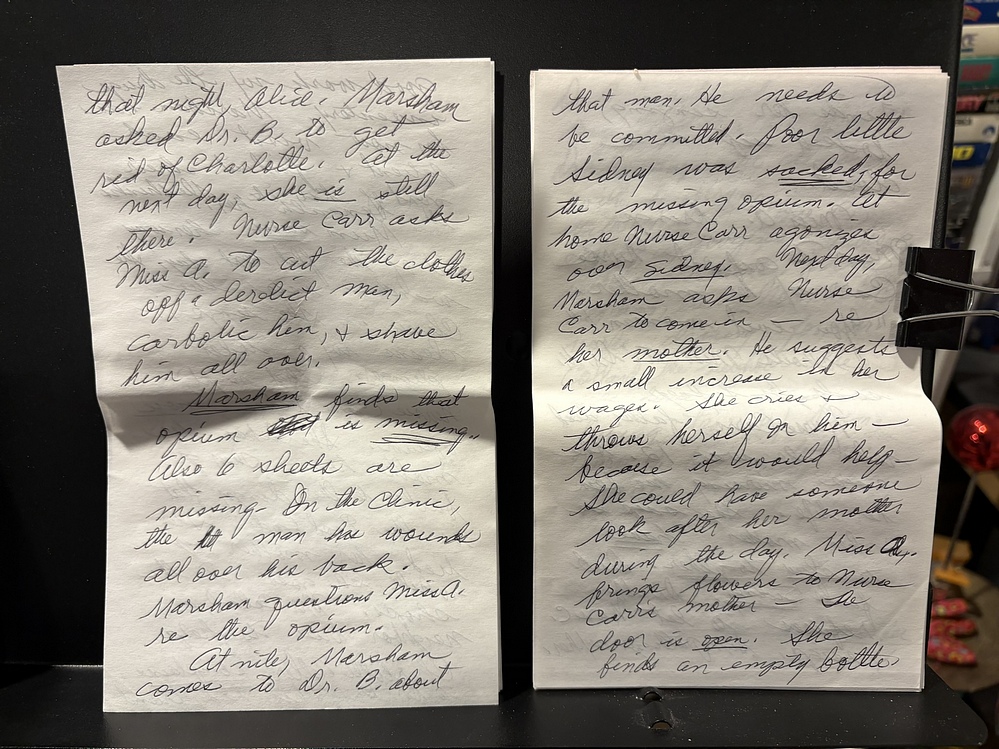 that night, Alice. Marsham
asked Dr. B. to get
rid of Charlotte. At the
next day, she is still
there. Nurse Carr asks
Miss A. to cut the clothes
off a derelict man,
carbolic him, & shave
him all over.
Marsham finds that
opium is missing.
Also 6 sheets are
missing. In the Clinic,
the man has wounds
all over his back.
Marsham questions Miss A.
re the opium.
At nite, Marsham
comes to Dr. B. about
that man. He needs to
be committed. Poor little
Sidney was sacked, for
the missing opium. At
home Nurse Carr agonizes
over Sidney. Next day,
Marsham asks Nurse
Carr to come in — re
her mother. He suggests
a small increase in her
wages. She cries &
throws herself on him —
because it would help —
She could have someone
look after her mother
during the day. Miss A.
brings flowers to Nurse
Carr's mother — The
door is open. She
finds an empty bottle.